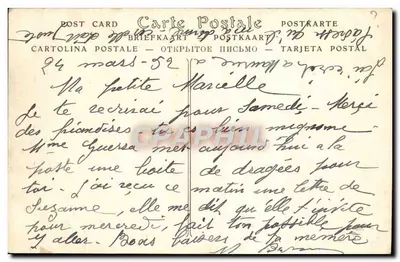 POST CARD Carte Postale POSTKARTE
BRIEFKAART POSTKAART
CARTOLINA POSTALE - ОТКРЫТОЕ ПИСЬМО - TARJETA POSTAL
24 mars - 52
Ma petite Marcelle
Je te recrirai pour Samedi - Merci
des friandises tu es bien mignonne
Mme Guersa met aujourd'hui a la
poste une boite de dragées pour
toi - j'ai reçu ce matin une lettre de
Suzanne, elle me dit qu'elle t'invite
pour mercredi, fait ton possible pour
y aller. Bons baisers de ta mémère
CPARAMA